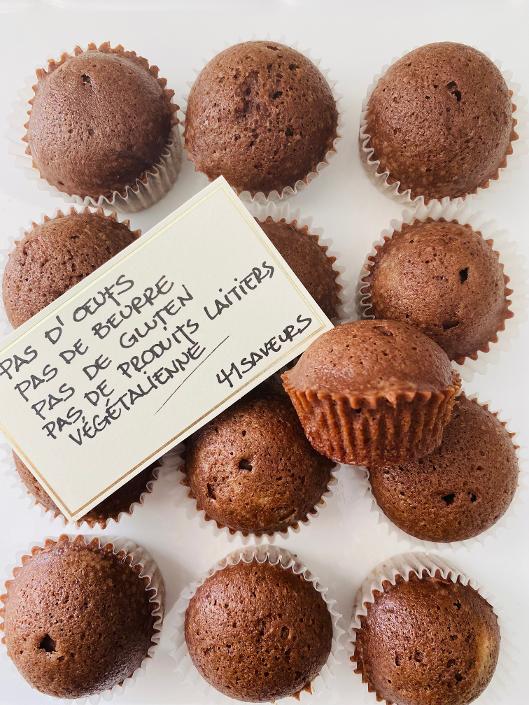 PAS D'OEUFS
PAS DE BEURRE
PAS DE GLUTEN
PAS DE PRODUITS LAITIERS
VÉGÉTALIENNE
41SAVEURS